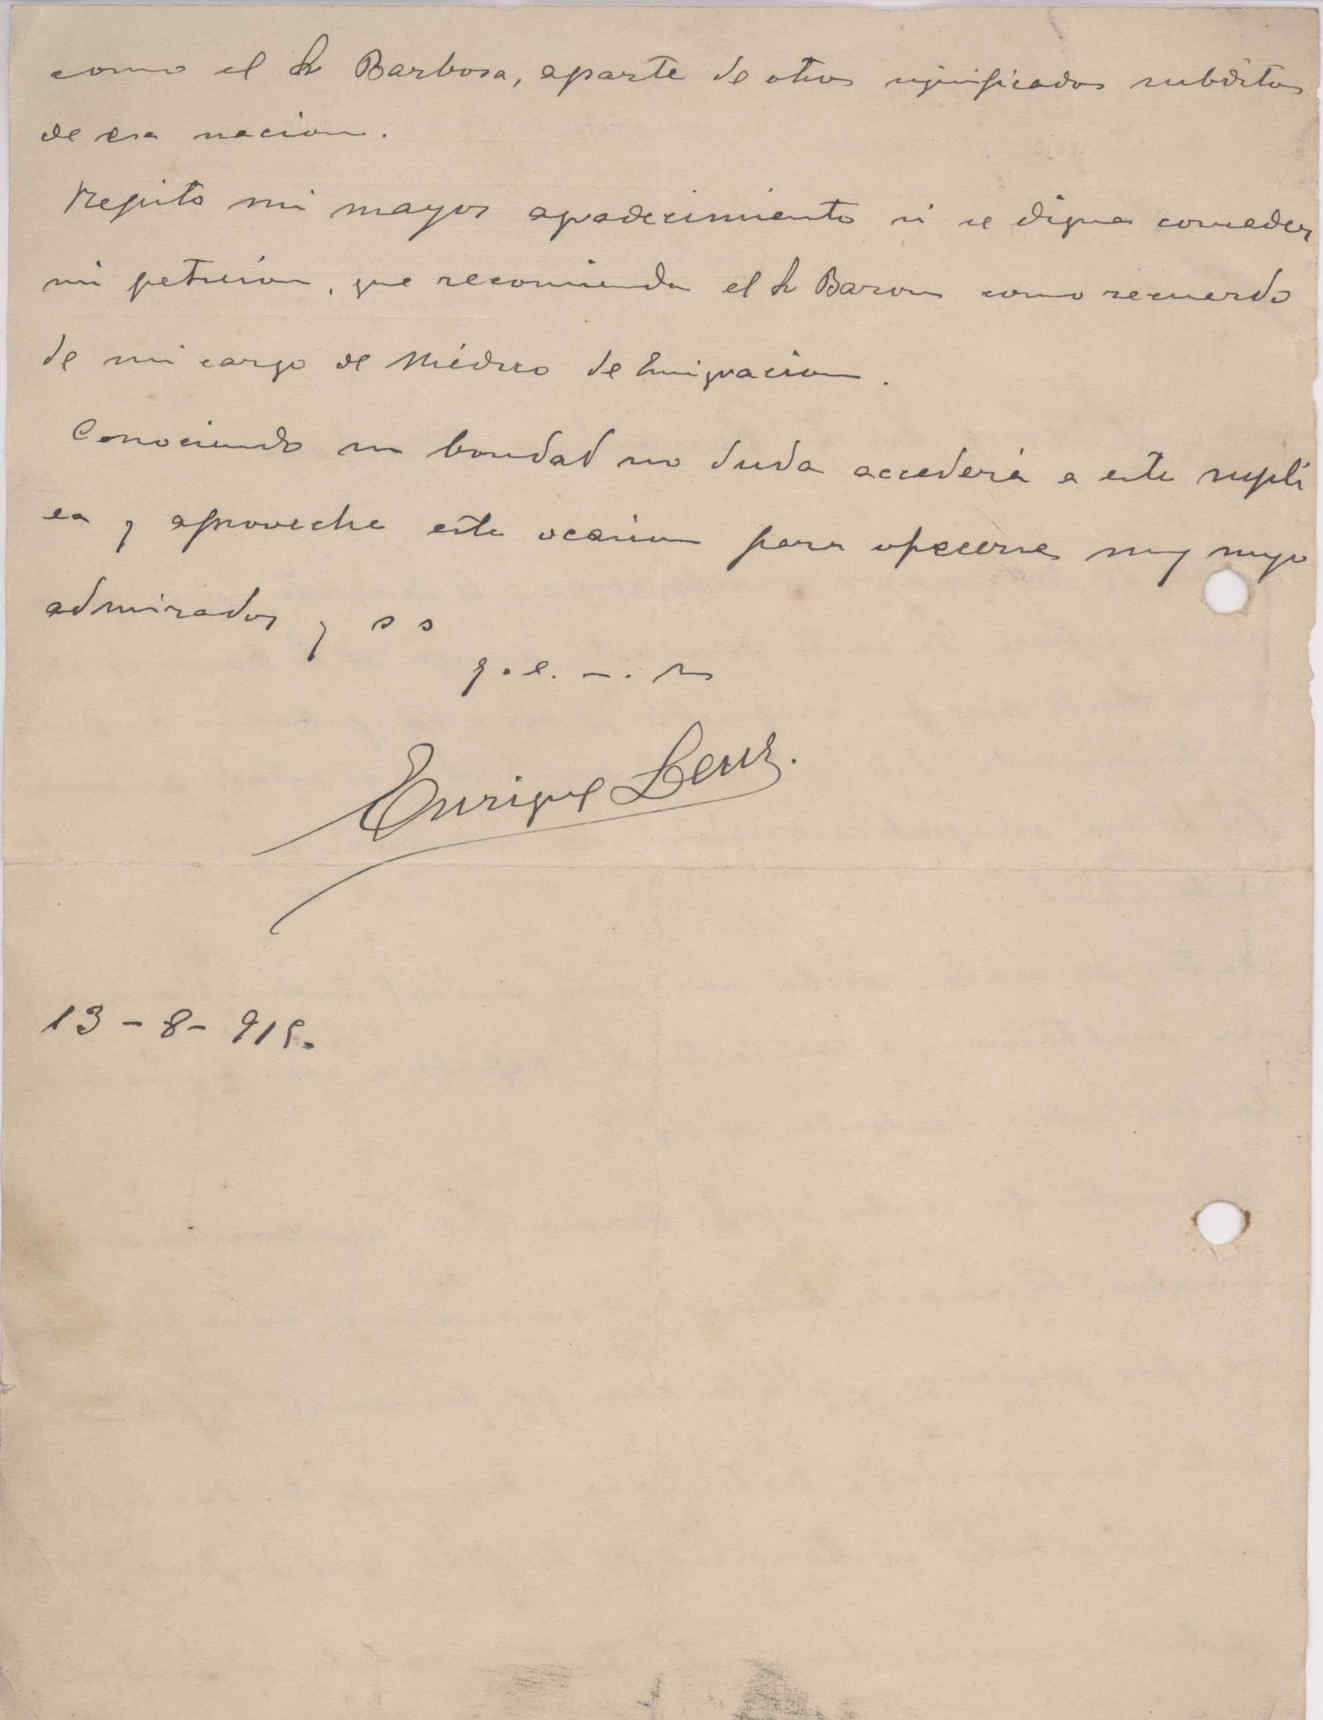 como el Sr Barbosa, aparte de otros significados subditos
de esa nacion.
Repito mi mayor agradecimiento si se digna conceder
mi peticion, que recomienda el Sr Baron como recuerdo
de mi cargo de Médico de Emigracion.
Conociendo su bondad no duda accederá a esta supli
ca y aprovecha esta ocasion para ofrecerse muy suyo
admirador y s s
q. e. s. m
Enrique
13-8-915.